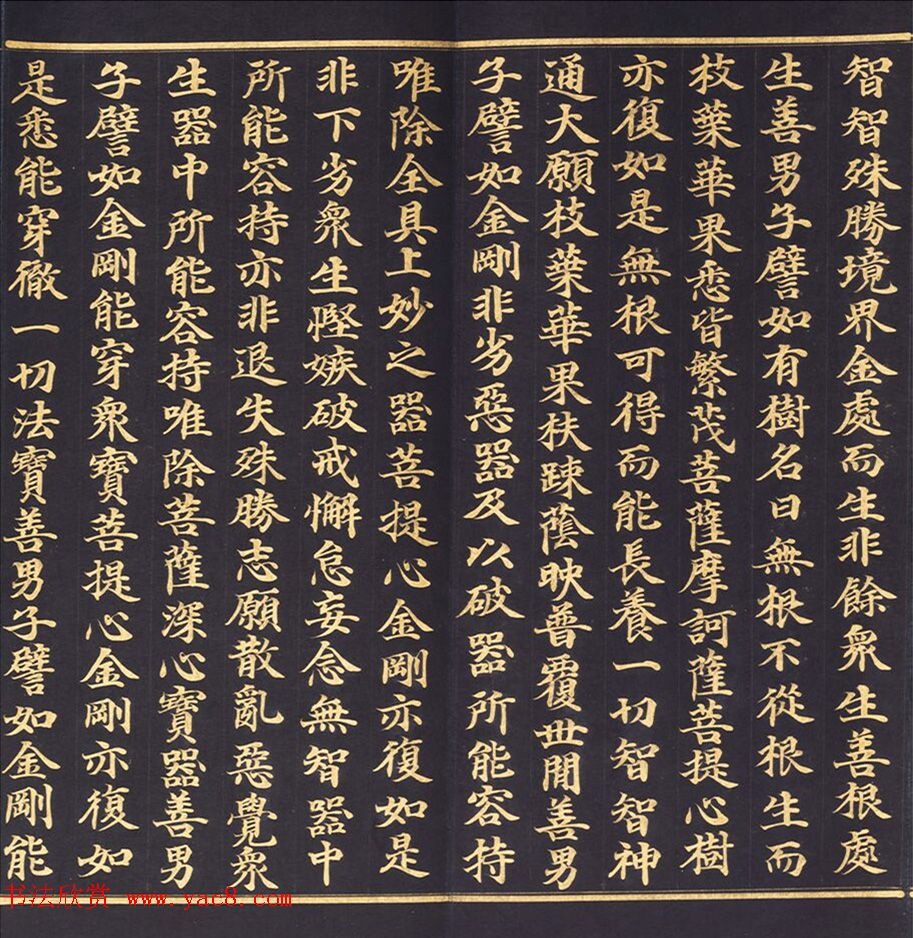 智智殊勝境界金處而生非餘衆生善根處
生善男子譬如有樹名曰無根不從根生而
枝葉華果悉皆繁茂菩薩摩訶薩菩提心樹
亦復如是無根可得而能長養一切智智神
通大願枝葉華果扶踈蔭映普覆世間善男
子譬如金剛非劣惡器及以破器所能容持
唯除全具上妙之器菩提心金剛亦復如是
非下劣衆生慳嫉破戒懈怠妄念無智器中
所能容持亦非退失殊勝志願散亂惡覺衆
生器中所能容持唯除菩薩深心寶器善男
子譬如金剛能穿衆寶菩提心金剛亦復如
是悉能穿徹一切法寶善男子譬如金剛能
书法欣赏 www.yac8.com